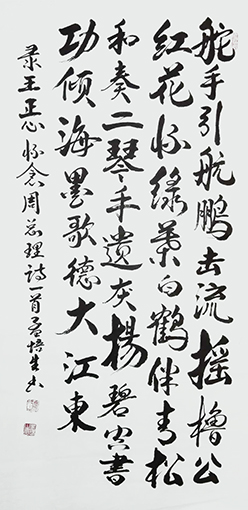 舵手引航鹏击流摇橹公
红花怀绿葉白鹤伴青松
和奏二琴手遗灰揚碧書
功倾海墨歌德大江東
录王正心怀念周总理诗一首孟悟生书